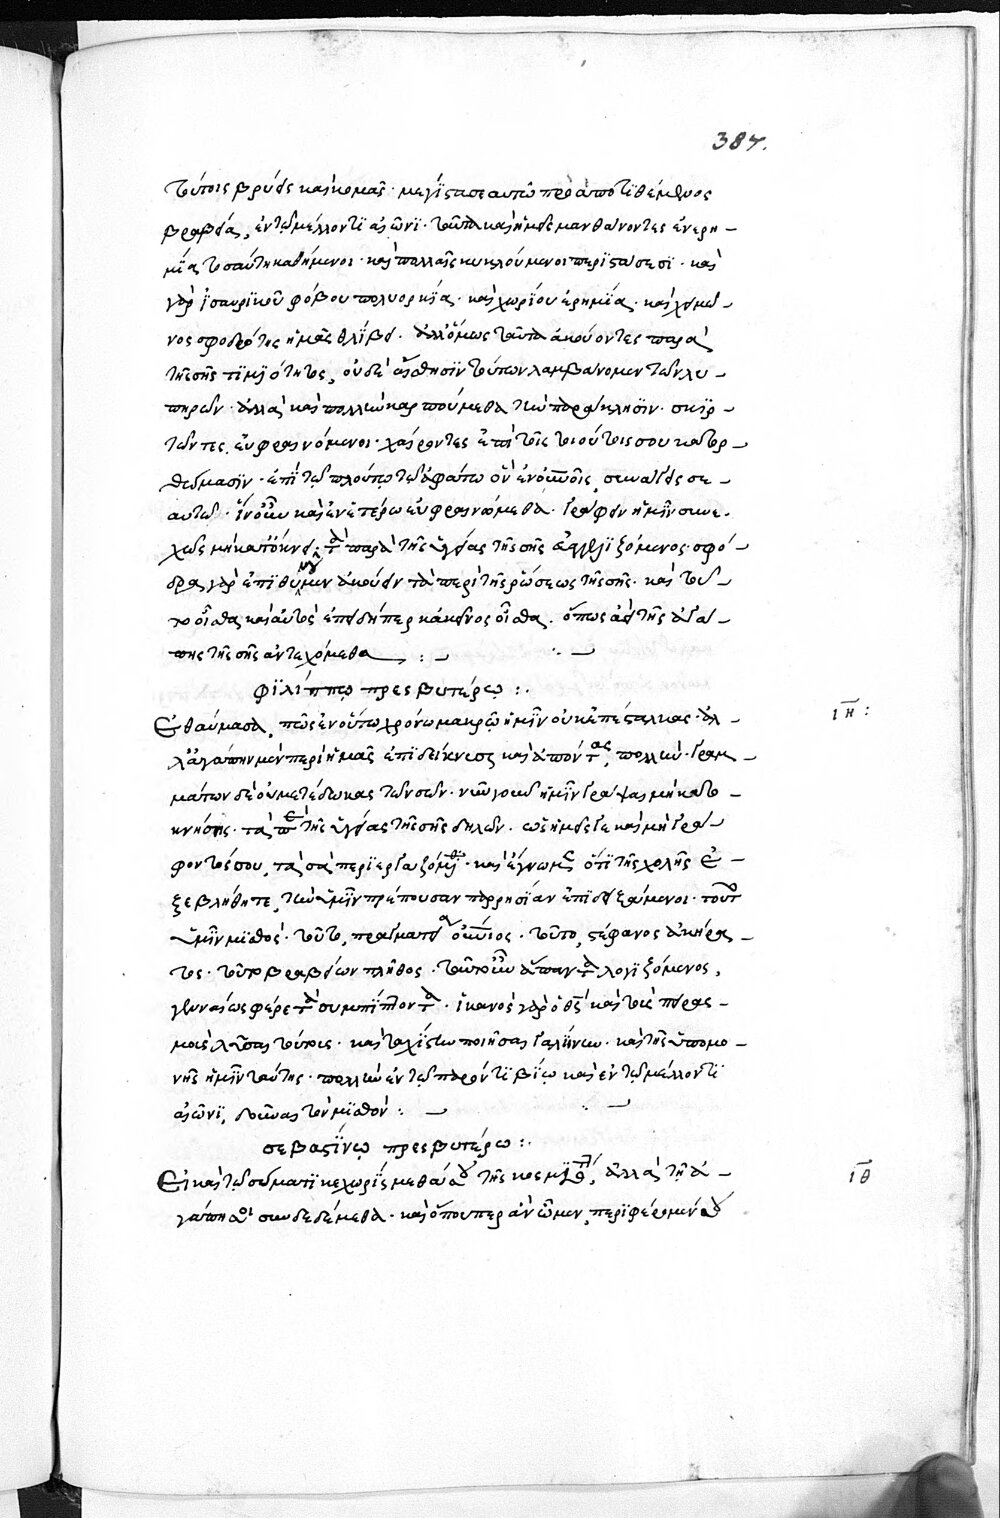 387.
τούτοις βρύεις καὶ κομᾷς· μεγίστα σεαυτῷ προαποτιθέμενος
βραβεῖα, ἐν τῷ μέλλοντι αἰῶνι· ταῦτα καὶ ἡμεῖς μανθάνοντες ἐν ἐρη-
μίᾳ τοσαύτῃ καθήμενοι· καὶ πολλαῖς κυκλούμενοι περιστάσεσι· καὶ
γὰρ ἰσαυρικοῦ φόβου πολυορκία· καὶ χωρίου ἐρημία· καὶ χειμῶ-
νος σφοδρότης ἡμᾶς θλίβει. ἀλλ' ὅμως ταῦτα ἀκούοντες παρὰ
τῆς σῆς τιμιότητος, οὐδὲ αἴσθησιν τούτων λαμβάνομεν τῶν λυ-
πηρῶν· ἀλλὰ καὶ πολλὴν καρπούμεθα τὴν παράκλησιν· σκιρ-
τῶντες, εὐφραινόμενοι· χαίροντες ἐπὶ τοῖς τοιούτοις σου κατορ-
θώμασιν· ἐπὶ τῷ πλούτῳ τῷ ἀφάτῳ ὃν ἐν οὐνοῖς συνάγεις σε-
αυτῷ· ἵν' οὖν καὶ ἐν ἑτέρῳ εὐφραινώμεθα· γράφειν ἡμῖν συνε-
χῶς μὴ κατόκνει, τὰ παρὰ τῆς ὑγείας τῆς σῆς εὐαγγελιζόμενος· σφό-
δρα γὰρ ἐπιθυμοῦμεν ἀκούειν τὰ περὶ τῆς ῥώσεως τῆς σῆς· καὶ τοῦ-
το οἶσθα καὶ αὐτὸς ἐπειδήπερ κἀκεῖνος οἶσθα. ὅπως ἀεὶ τῆς ἀγά-
πης τῆς σῆς ἀντεχόμεθα :-
φιλίππῳ πρεσβυτέρῳ :·
ιη:
Ἐθαύμασα, πῶς ἐν οὕτω χρόνῳ μακρῷ ἡμῖν οὐκ ἐπέσταλκας· ἀλ-
λ' ἀγάπην μὲν περὶ ἡμᾶς ἐπιδείκνυσαι καὶ ἀπόντας, πολλήν· γραμ-
μάτων δὲ οὐ μετέδωκας τῶν σῶν· νῦν γοῦν ἡμῖν γράψαι μὴ κατο-
κνήσῃς· τὰ περὶ τῆς ὑγείας τῆς σῆς δηλῶν. ὡς ἡμεῖς γε καὶ μὴ γρά-
φοντός σου, τὰ σὰ περιεργαζόμεθα· καὶ ἔγνωμεν ὅτι τῆς χολῆς ἐ-
ξεβλήθητε, τὴν ὑμῖν πρέπουσαν παρρησίαν ἐπιδειξάμενοι· τοῦτο
ὑμῖν μισθός· τοῦτο, πραγματεία οὐνιος· τοῦτο, στέφανος ἀκήρα-
τος· τοῦτο βραβείων πλῆθος· ταῦτα οὖν ἅπαντα λογιζόμενος,
γενναίως φέρε τὰ συμπίπτοντα· ἱκανὸς γὰρ ὁ θς καὶ τοὺς πειρασ-
μοὺς λῦσαι τούτους· καὶ ταχίστην ποιῆσαι γαλήνην· καὶ τῆς ὑπομο-
νῆς ἡμῖν ταύτης· πολλὴν ἐν τῷ παρόντι βίῳ καὶ ἐν τῷ μέλλοντι
αἰῶνι, δοῦναι τὸν μισθόν : -
σεβαστίνῳ πρεσβυτέρῳ :·
ιθ
Εἰ καὶ τῷ σώματι κεχωρίσμεθά σου τῆς κοσμιότητος, ἀλλὰ τῇ ἀ-
γάπῃ σοι συνδεδέμεθα· καὶ ὅπου περ ἂν ὦμεν, περιφέρομέν σου